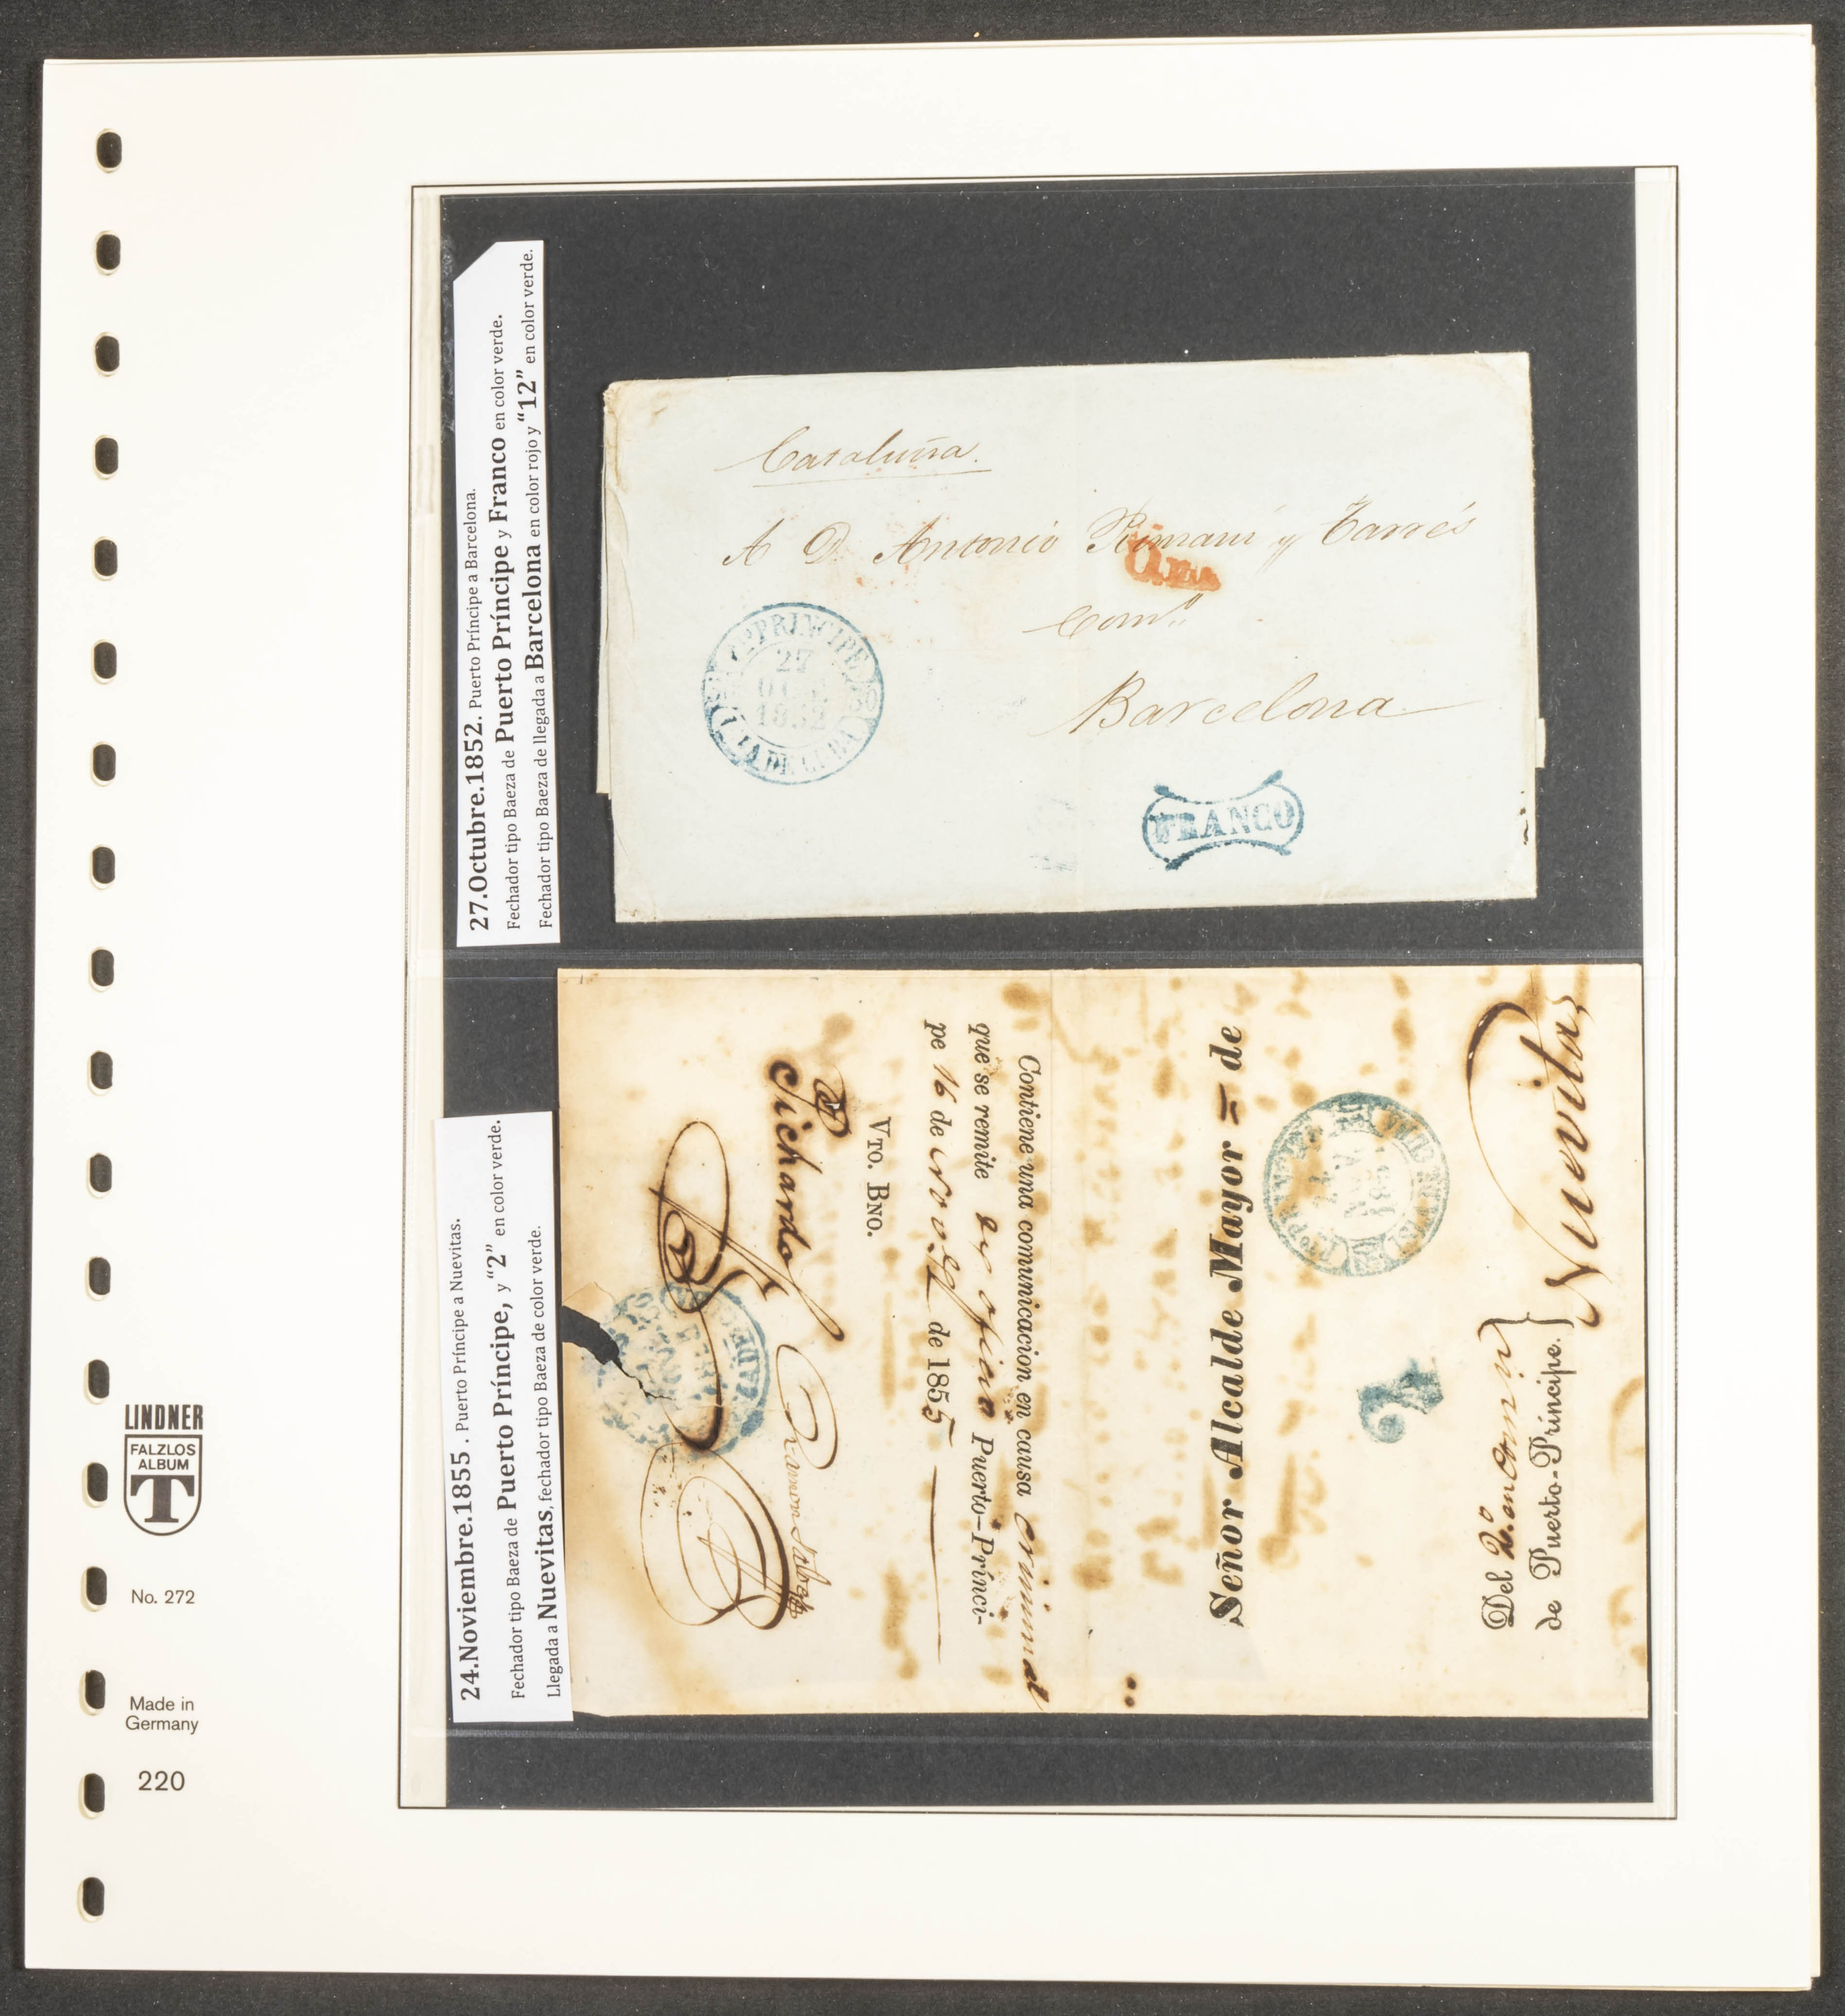 27.Octubre.1852. Puerto Príncipe a Barcelona.
Fechador tipo Baeza de Puerto Príncipe y Franco en color verde.
Fechador tipo Baeza de llegada a Barcelona en color rojo y “12” en color verde.
Cataluña.
A D. Antonio y Tarrés
Barcelona
PRINCIPE
27
OCT
1852
ISLA DE CUBA
FRANCO
24.Noviembre.1855 . Puerto Príncipe a Nuevitas.
Fechador tipo Baeza de Puerto Príncipe, y “2” en color verde.
Llegada a Nuevitas, fechador tipo Baeza de color verde.
Nuevitas,
Del 2.º
de Puerto-Príncipe. }
2
Señor Alcalde Mayor = de
Contiene una comunicacion en causa criminal
que se remite de oficio Puerto-Prínci-
pe 16 de de 1855
VTO. BNO.
Pichardo
LINDNER
FALZLOS
ALBUM
T
No. 272
Made in
Germany
220